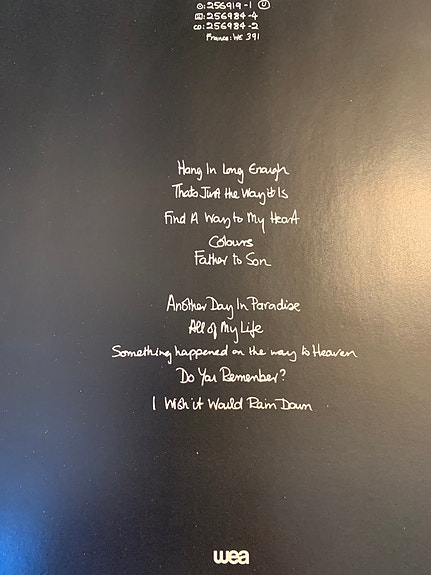 : 256919-1 U
: 256984-4
CD: 256984-2
France: WE 391
Hang In Long Enough
Thats Just the Way it Is
Find A Way to My Heart
Colours
Father to Son
Another Day In Paradise
All of My Life
Something happened on the way to Heaven
Do You Remember?
I Wish it Would Rain Down
wea